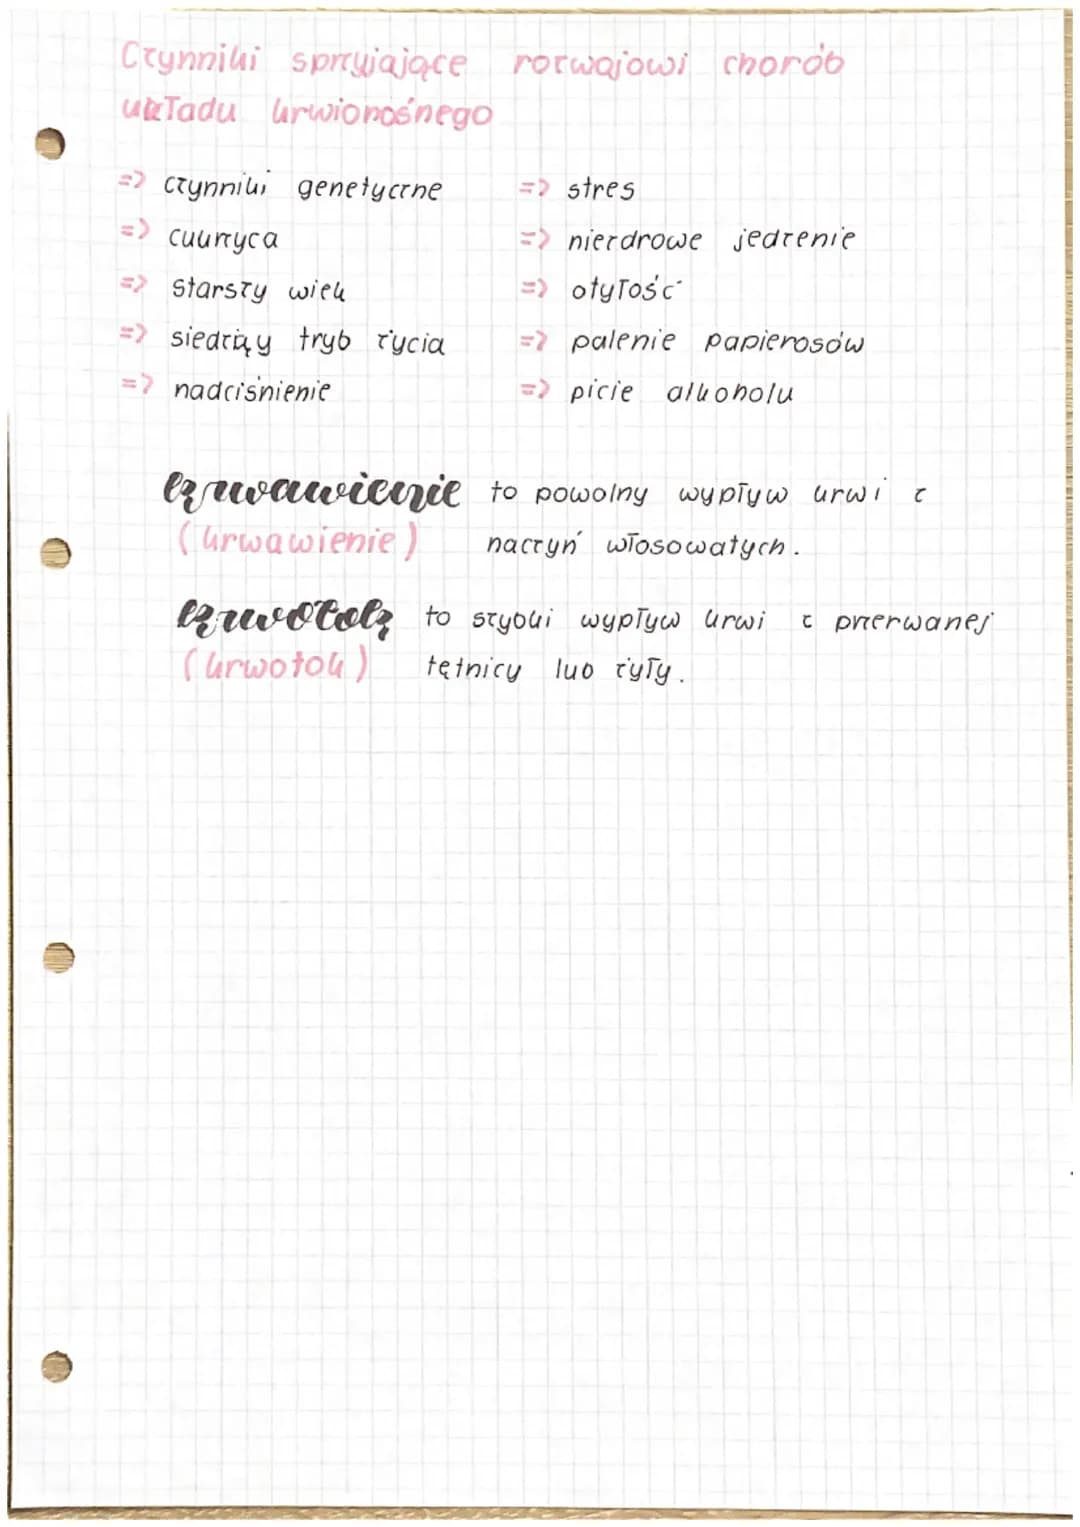 Czynniki sprzyjające rozwojowi chorób
układu krwionośnego
=> czynniki genetyczne
=> cukrzyca
=> starszy wiek
=> siedzący tryb życia
=> nadciśnienie
=> stres
=> niezdrowe jedzenie
=> otyłość
=> palenie papierosów
=> picie alkoholu
krwawienie to powolny wypływ krwi z
(krwawienie) naczyń włosowatych.
krwotok to szybki wypływ krwi z przerwanej
(krwotok) tętnicy lub żyły.